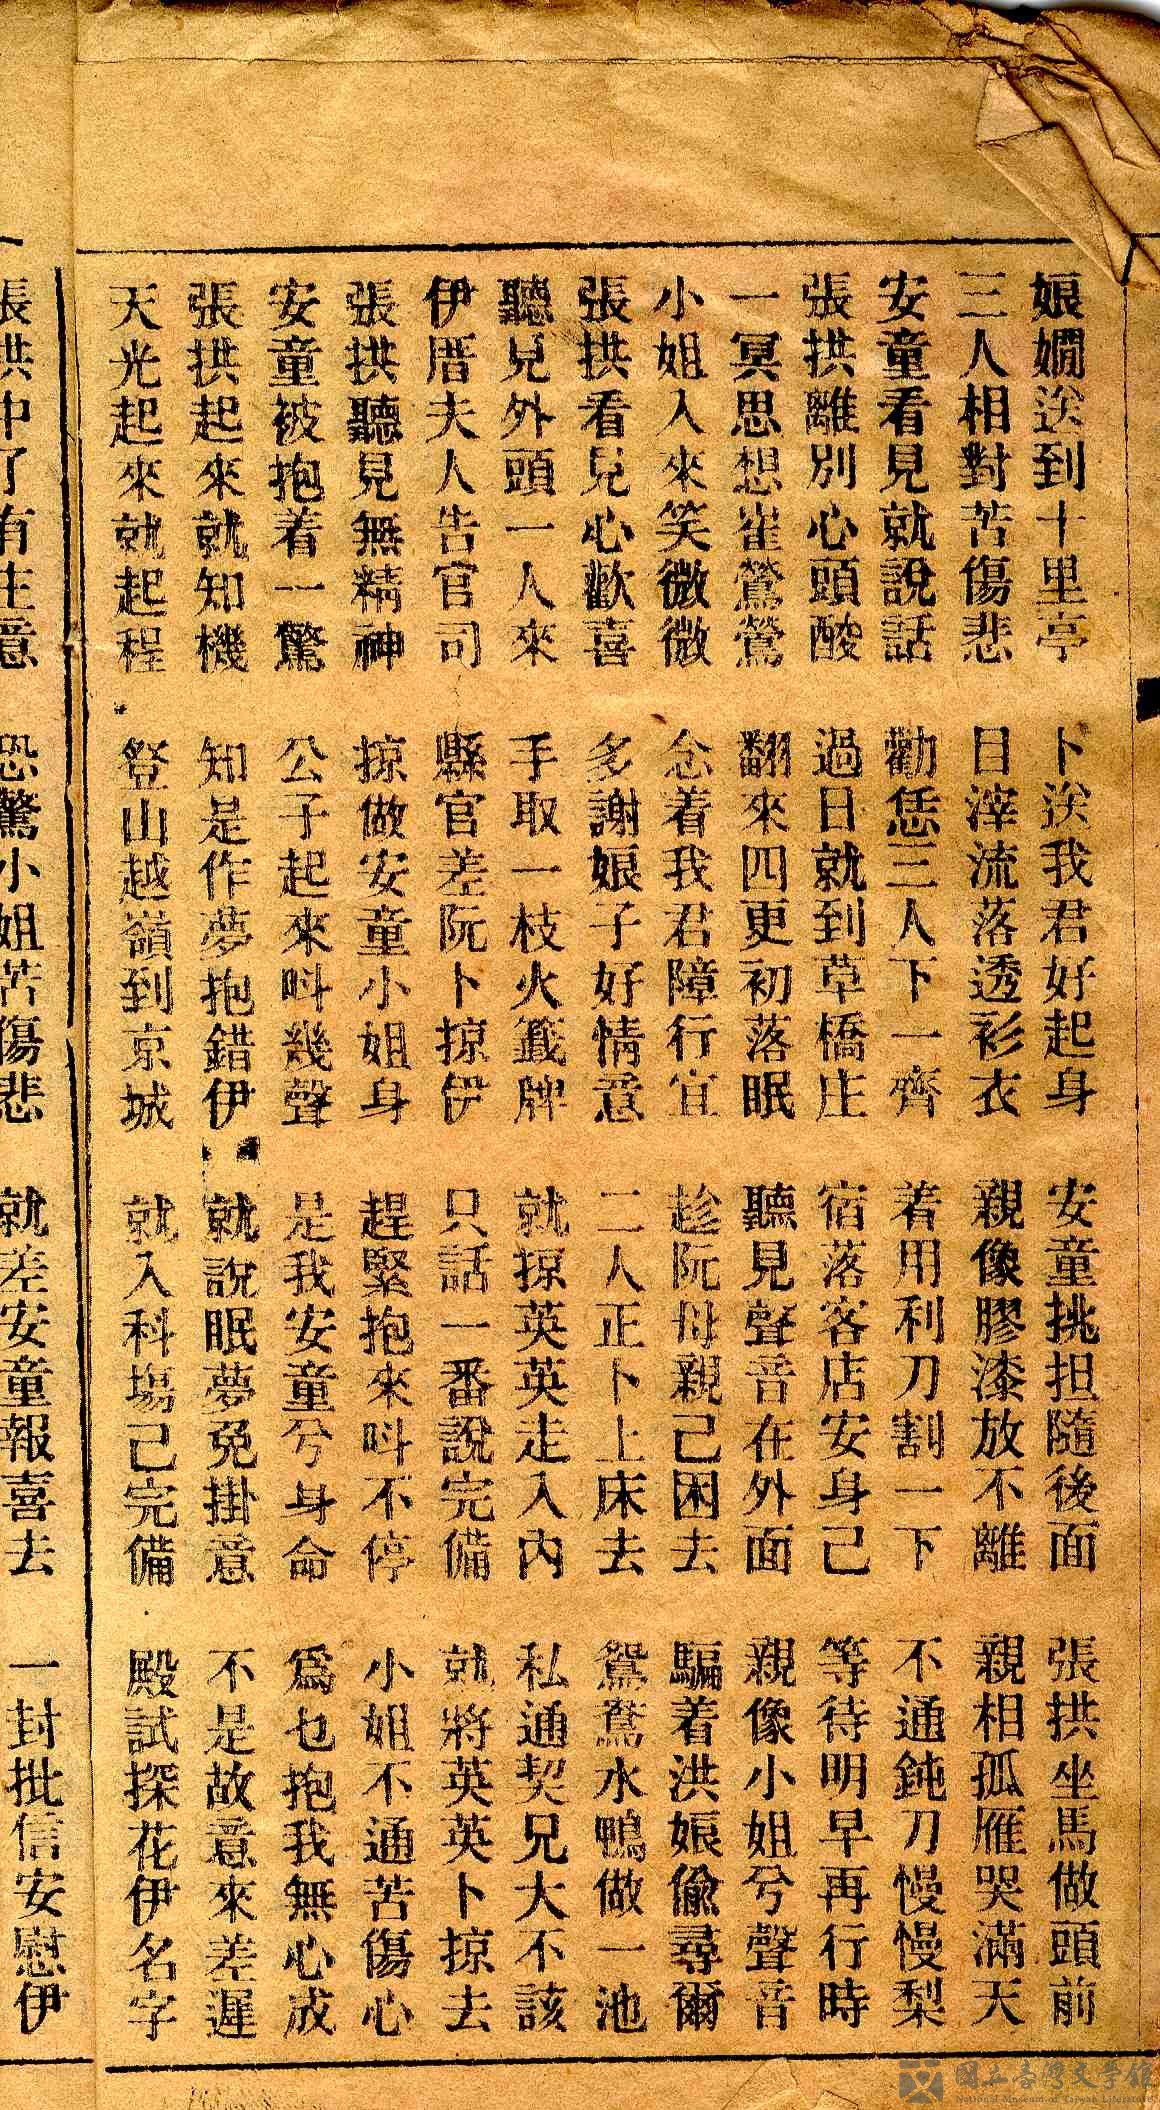 娘嫺送到十里亭 卜送我君好起身 安童挑担隨後面 張拱坐馬做頭前
三人相對苦傷悲 目滓流落透衫衣 親像膠漆放不離 親相孤雁哭滿天
安童看見就說話 勸恁三人下一齊 着用利刀割一下 不通鈍刀慢慢梨
張拱離別心頭酸 過日就到草橋庄 宿落客店安身己 等待明早再行時
一冥思想崔鶯鶯 翻來四更初落眠 聽見聲音在外面 親像小姐兮聲音
小姐入來笑微微 念着我君障行宜 趁阮母親己困去 騙着洪娘偸尋爾
張拱看見心歡喜 多謝娘子好情意 二人正卜上床去 鴛鴦水鴨做一池
聽見外頭一人來 手取一枝火籤牌 就掠英英走入內 私通契兄大不該
伊厝夫人告官司 縣官差阮卜掠伊 只話一番說完備 就將英英卜掠去
張拱聽見無精神 掠做安童小姐身 趕緊抱來呌不停 小姐不通苦傷心
安童被抱着一驚 公子起來呌幾聲 是我安童兮身命 爲乜抱我無心成
張拱起來就知機 知是作夢抱錯伊 就說眠夢免掛意 不是故意來差遲
天光起來就起程 登山越嶺到京城 就入科塲己完備 殿試探花伊名字
張拱中了有主意 恐驚小姐苦傷悲 就差安童報喜去 一封批信安慰伊
國立臺灣文學館
National Museum of Taiwan Literature